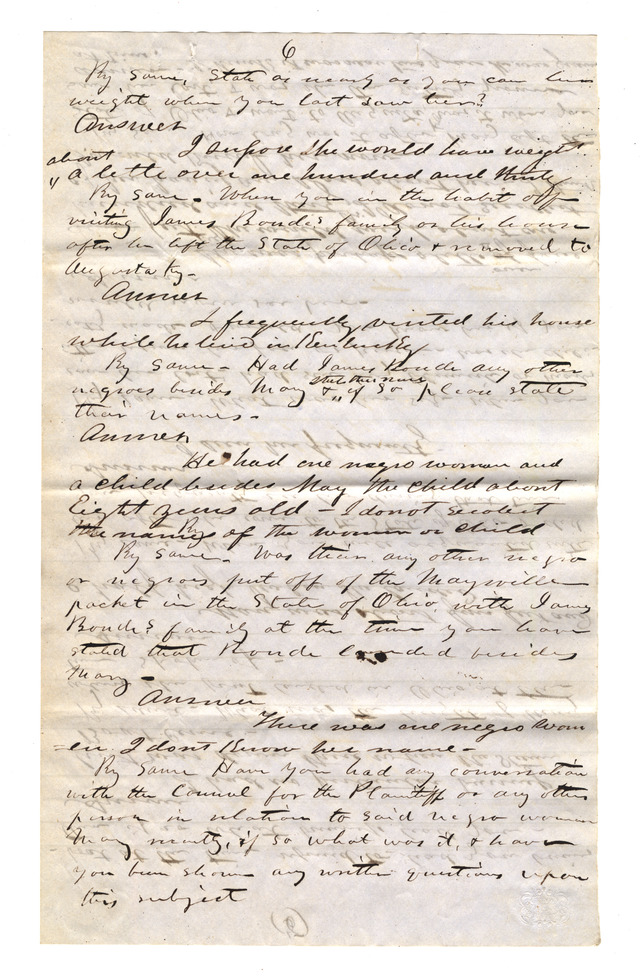 6
By same, State as nearly as you can her
weight when you last saw her?
Answer
I supose she would have weight
about
" a little over one hundred and thirty
By same. When you in the habit off
visiting James Bonde's family or his house
after he left the State of Ohio & removed to
Augusta Ky-
Answer
I frequently visited his house
while he livd in Kentucky
By same - Had James Bonde any other
negroes besides Mary & " if so please state
their names-
Answer
He had one negro woman and
a child besides May the child about
Eight years old - I do not recolect
the names of the woman or child
By same. Was their any other negro
or negroes put off of the Maysville
packet in the State of Ohio with James
Bonde's family at the time you have
stated that Bonde landed besides
Mary-
Answer
There was one negro wom
=en I dont Know her name-
By same Have you had any conversation
with the Councel for the Plantiff or any other
person in relation to said negro woman
Mary, if so what was it, & have
you been shown any written questions upon
this subject
6